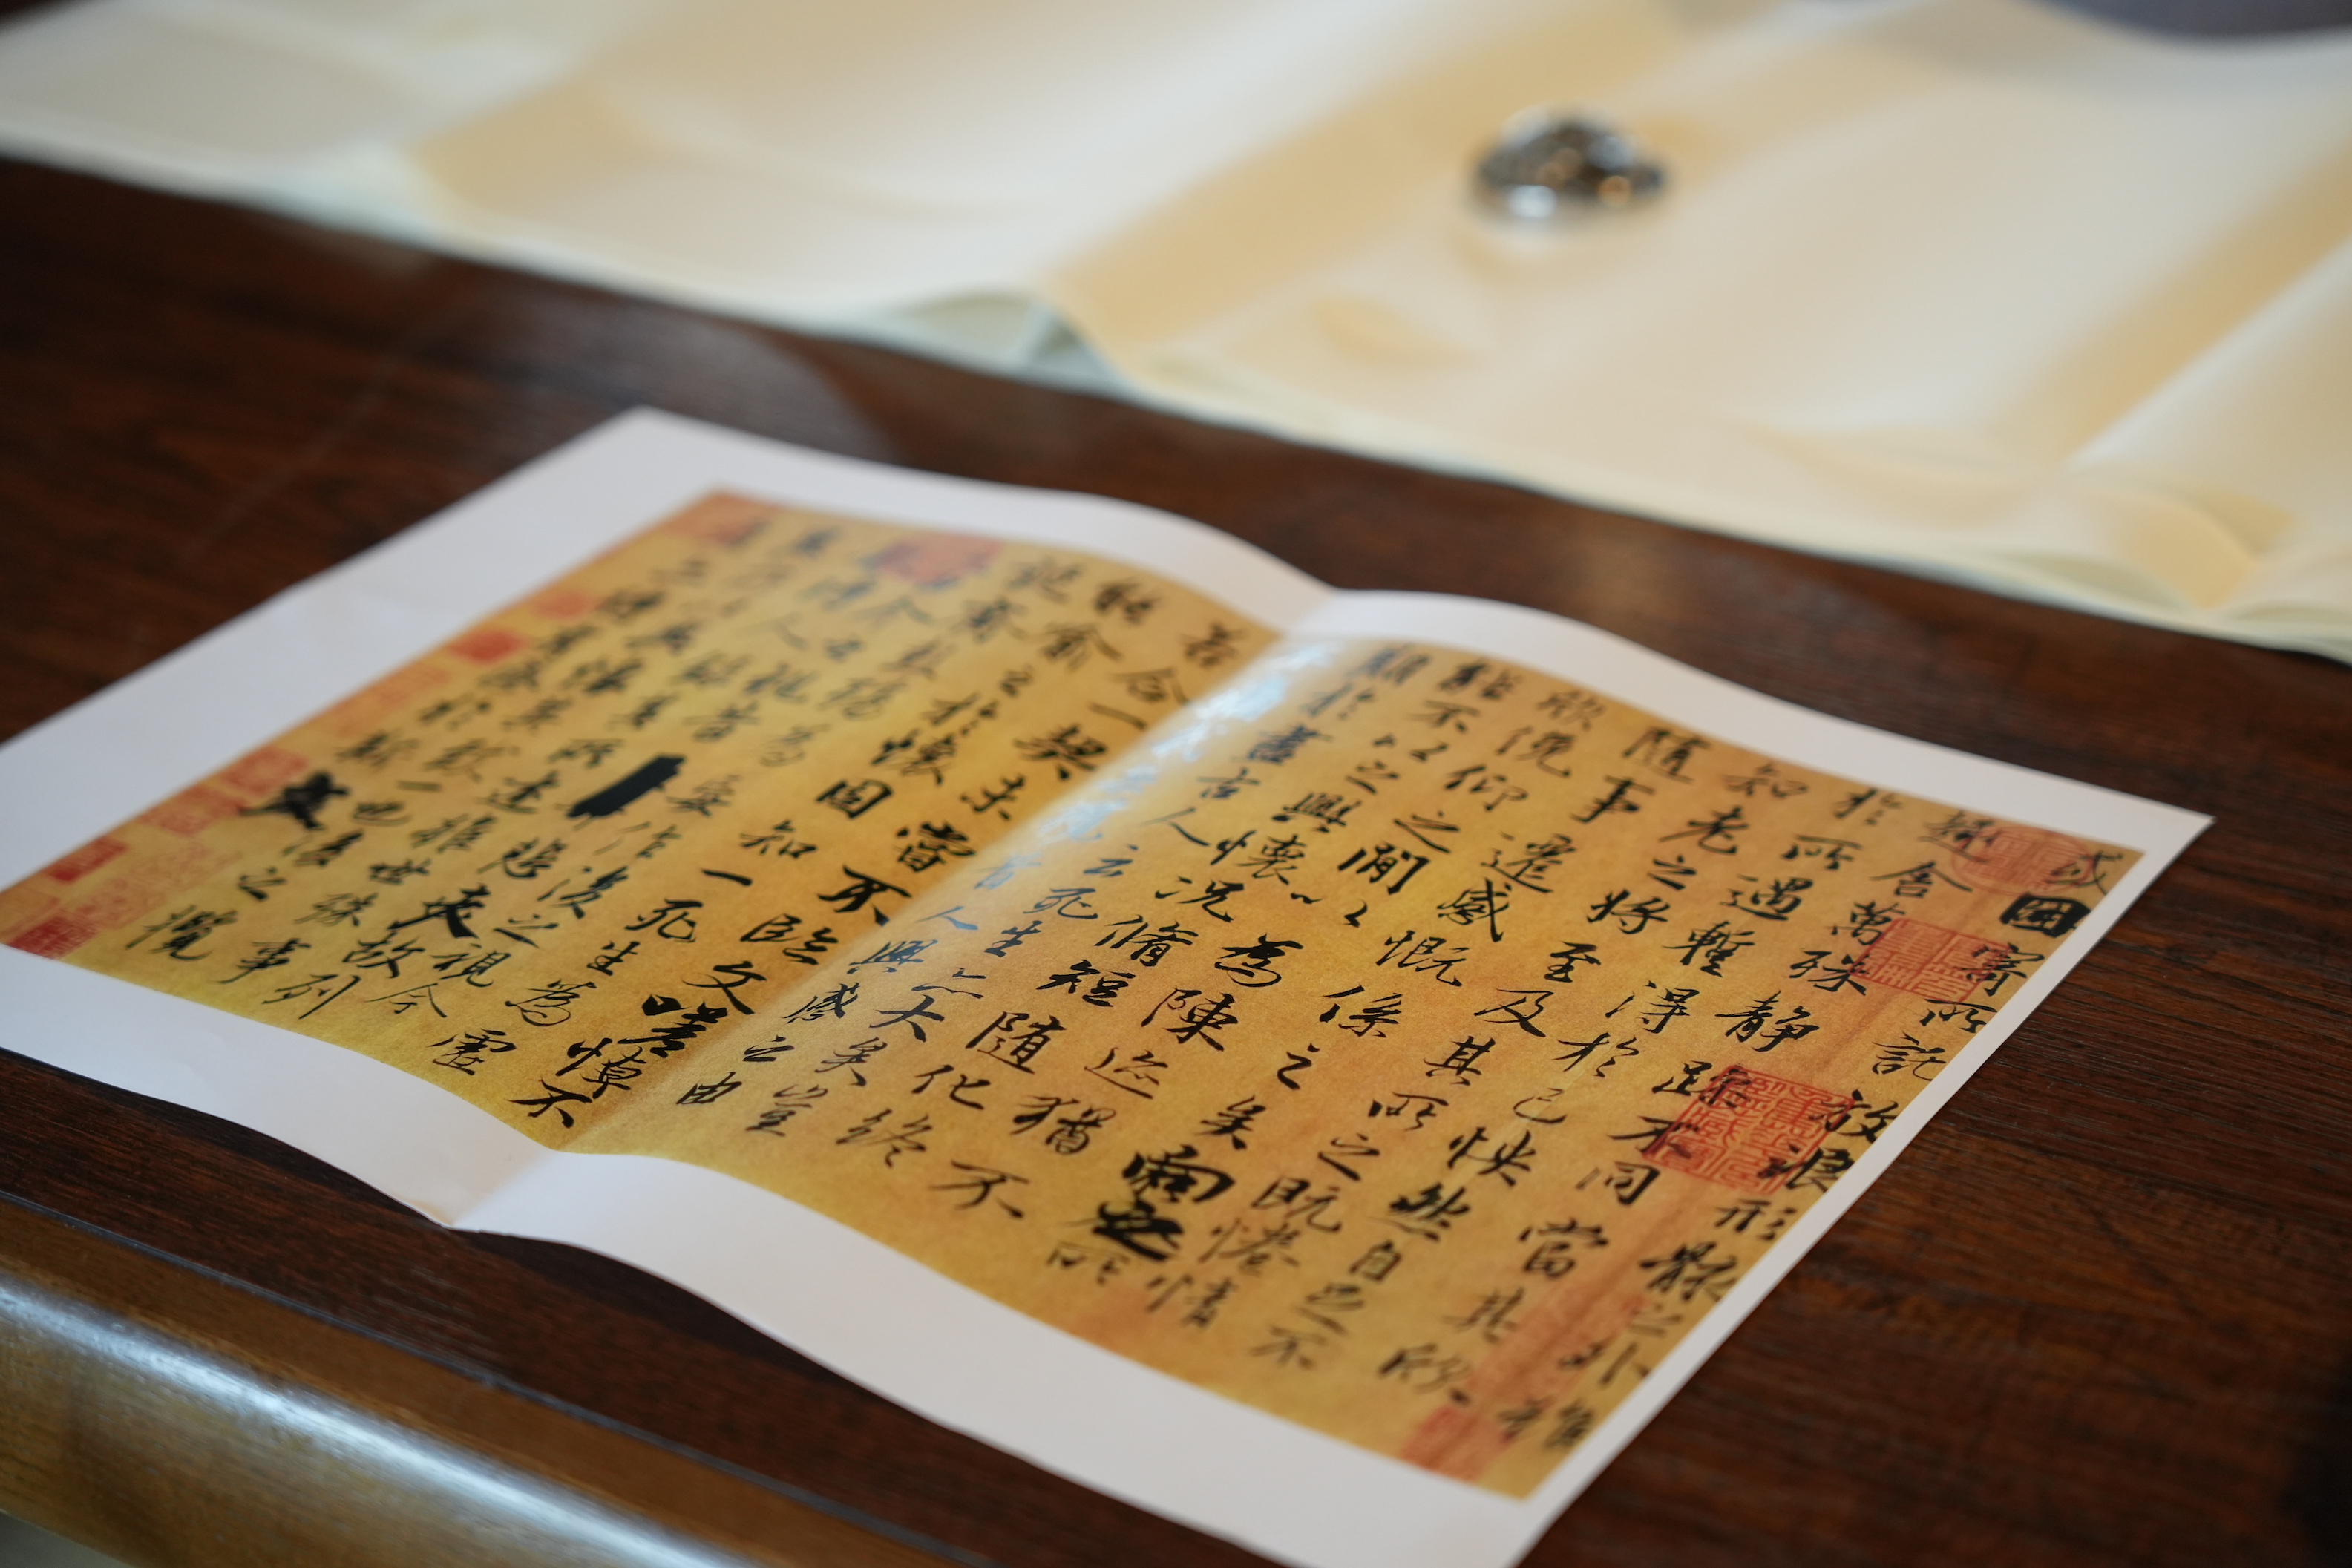 或因寄所託放浪形骸之外雖
趣舍萬殊靜躁不同當其欣
於所遇暫得於己快然自足不
知老之將至及其所之既惓情
隨事遷感慨係之矣向之所
欣俛仰之間以為陳迹猶不
能不以之興懷況脩短隨化終
期於盡古人云死生亦大矣豈
不痛哉每攬昔人興感之由
若合一契未嘗不臨文嗟悼不
能喻之於懷固知一死生為虛
誕齊彭殤為妄作後之視今
亦由今之視昔悲夫故列
敘時人錄其所述雖世殊事
異所以興懷其致一也後之攬
者亦將有感於斯文